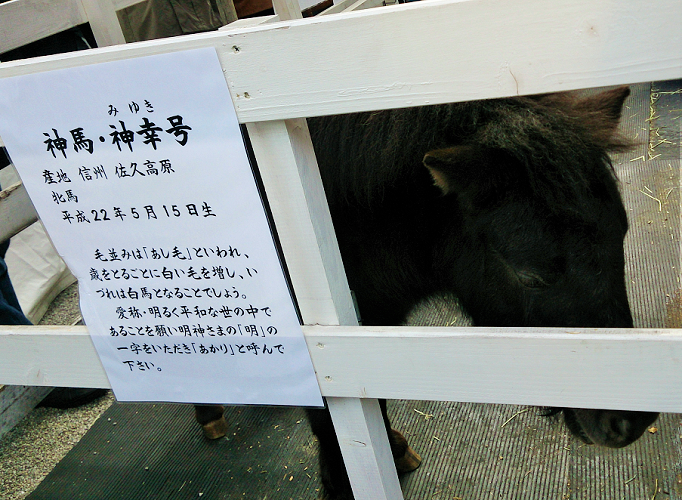 みゆき
神馬・神幸号
産地 信州 佐久高原
牝馬
平成22年5月15日生
毛並みは「あし毛」といわれ、
歳をとるごとに白い毛を増し、い
づれは白馬となることでしょう。
愛称・明るく平和な世の中で
あることを願い明神さまの「明」の
一字をいただき「あかり」と呼んで
下さい。